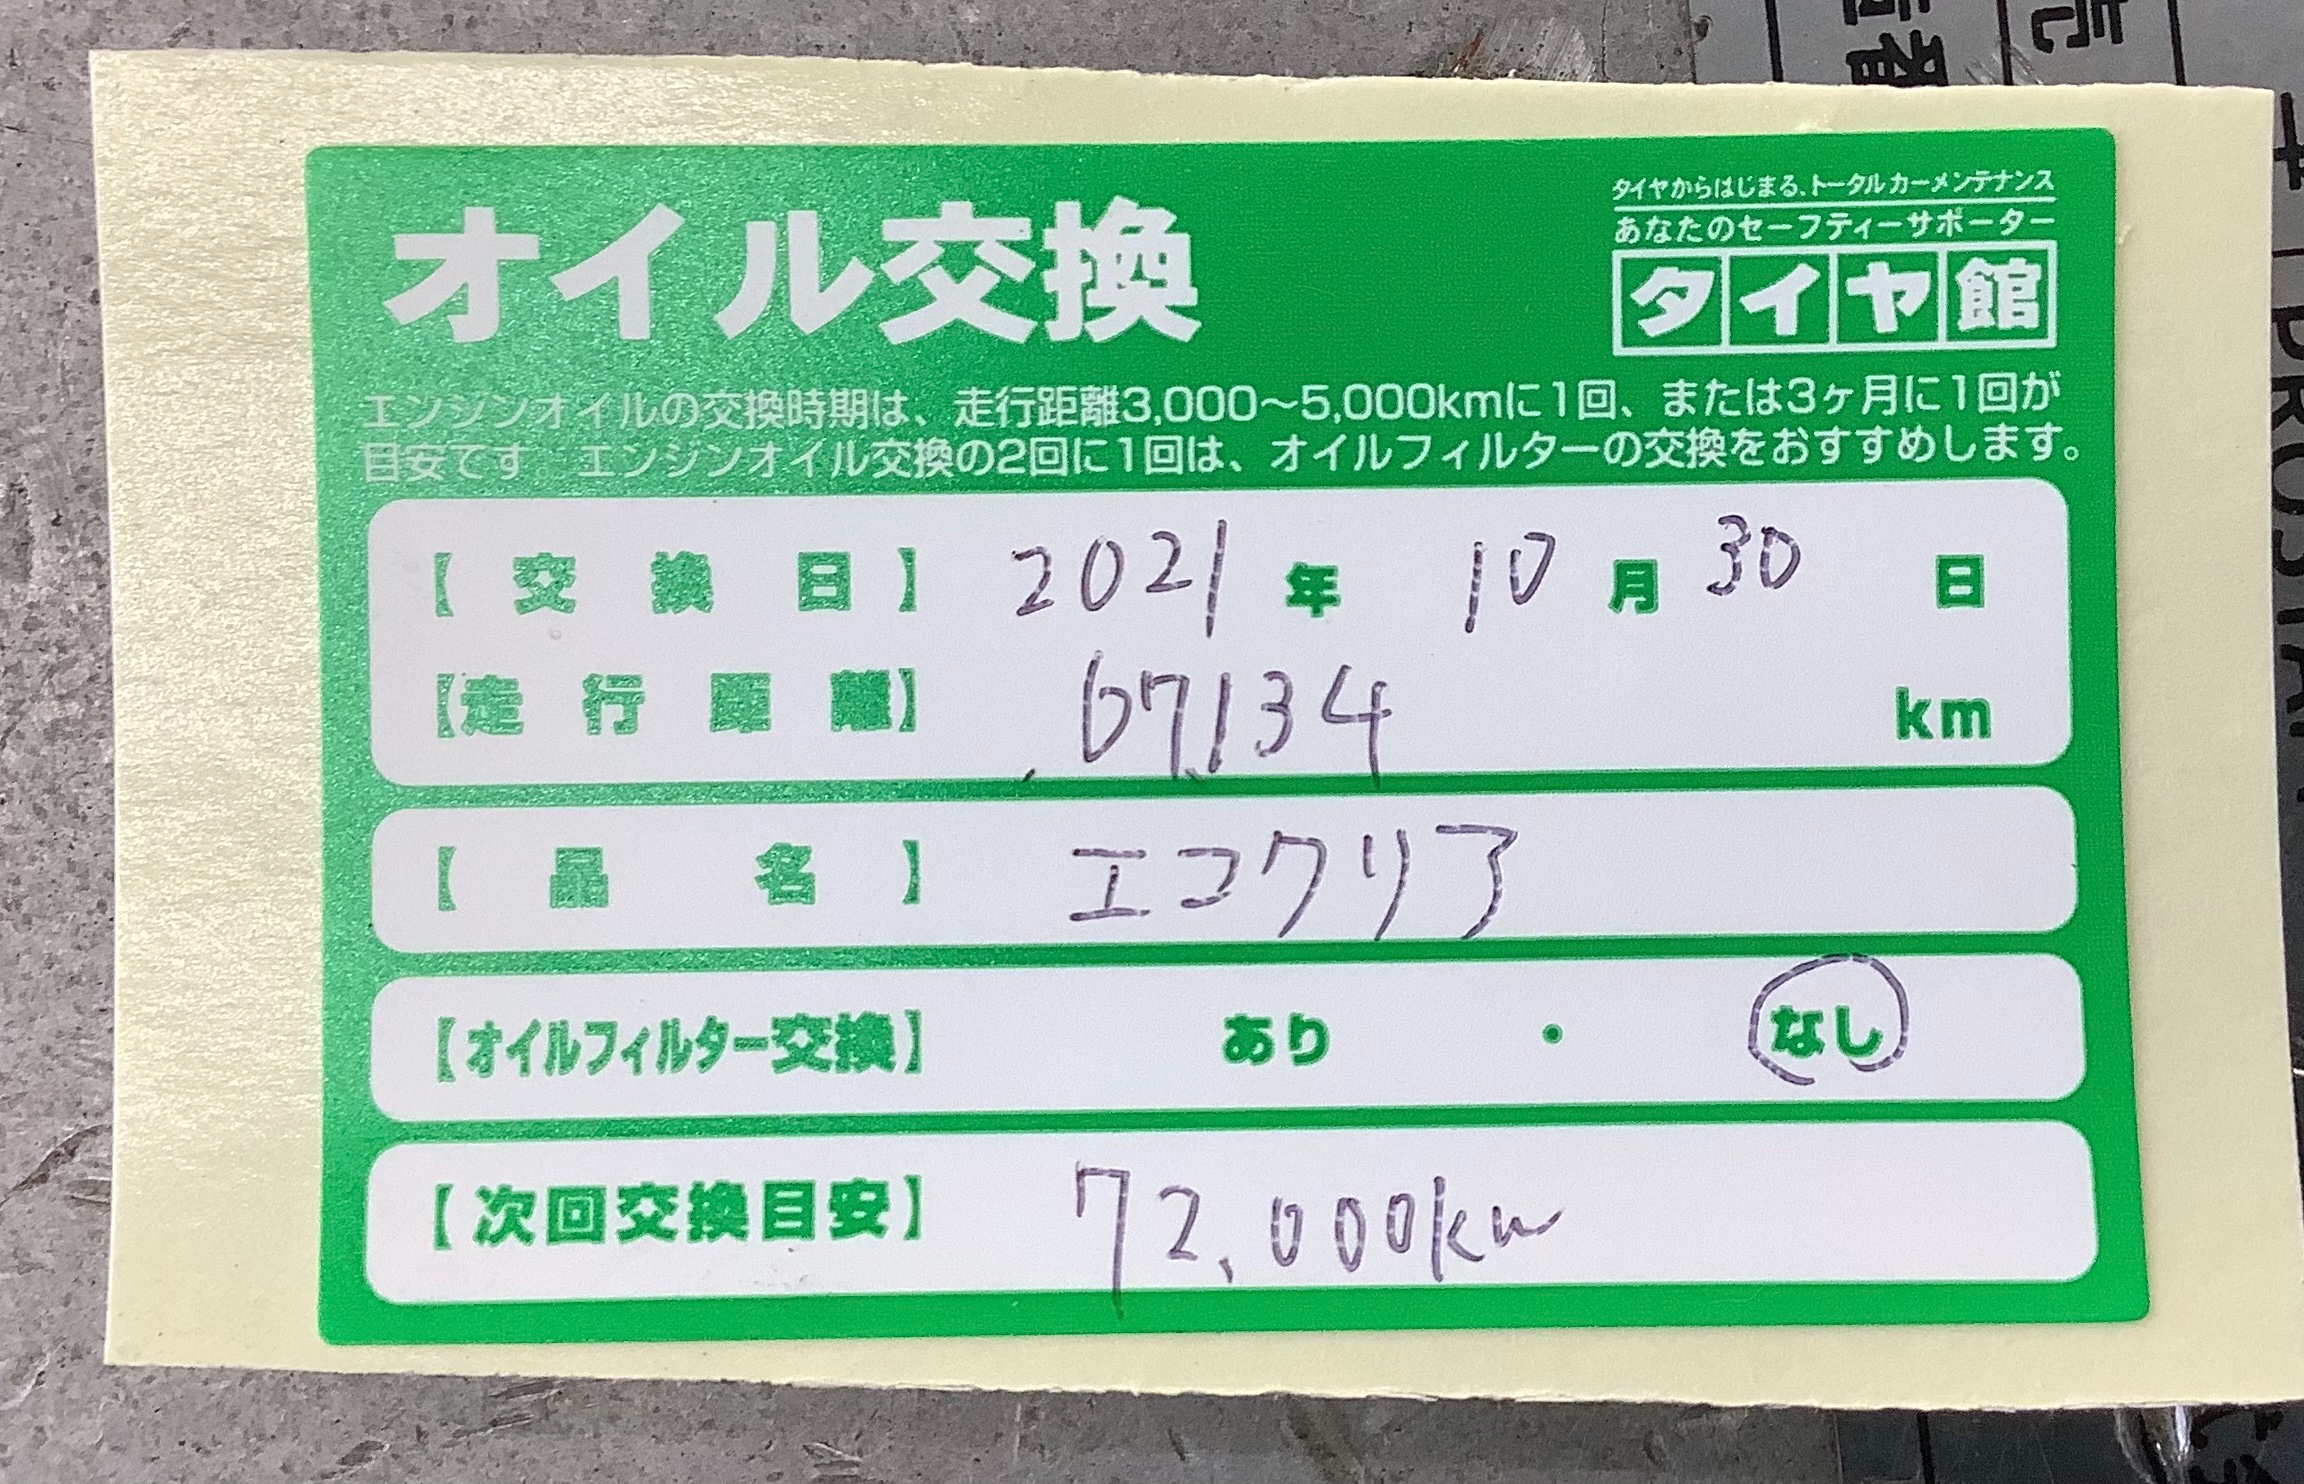 オイル交換
タイヤからはじまる、トータルカーメンテナンス
あなたのセーフティーサポーター
タイヤ館
エンジンオイルの交換時期は、走行距離3,000〜5,000kmに1回、または3ヶ月に1回が
目安です。エンジンオイル交換の2回に1回は、オイルフィルターの交換をおすすめします。
【交換日】 2021年 10月30日
【走行距離】 67,134 km
【品名】 エコクリア
【オイルフィルター交換】 あり ・ なし
【次回交換目安】 72,000km